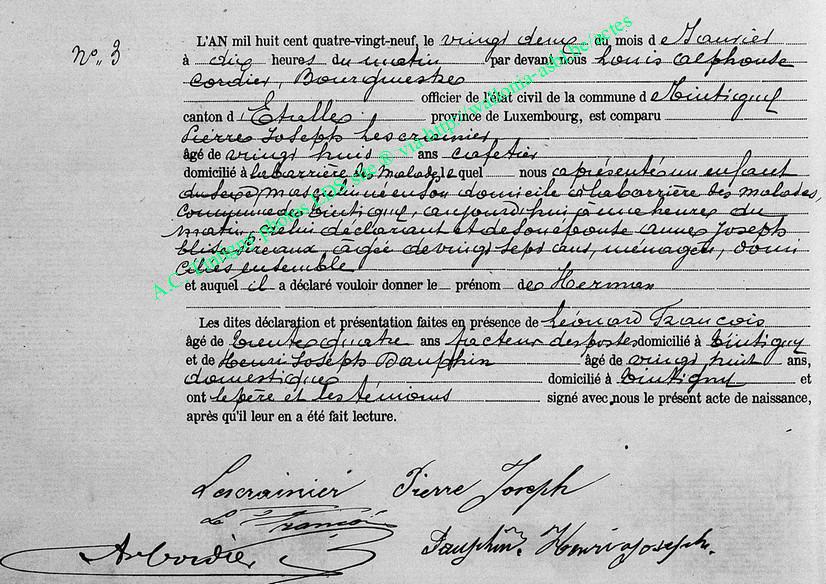 N° 3
L'AN mil huit cent quatre-vingt-neuf, le vingt deux du mois de Janvier
à dix heures du matin par devant nous Louis Alphonse
Cordier, Bourgmestre
officier de l'état civil de la commune de Tintigny
canton d'Etalle province de Luxembourg, est comparu
Pierre Joseph Lescrainier
âgé de vingt huit ans cafetier
domicilié à la barrière des Malades, lequel nous a présenté un enfant
du sexe masculin né en son domicile à la barrière des malades,
commune de Tintigny, aujourd'hui à une heure du
matin, de lui déclarant et de son épouse Anne Joseph
âgée de vingt sept ans, ménagère, domi
ciliés ensemble
et auquel il a déclaré vouloir donner le prénom de Herman
Les dites déclaration et présentation faites en présence de Léonard François
âgé de trente quatre ans facteur des postes domicilié à Tintigny
et de Henri Joseph Dauphin âgé de vingt huit ans,
domestique domicilié à Tintigny et
ont le père et les témoins signé avec nous le présent acte de naissance,
après qu'il leur en a été fait lecture.
Lescrainier Pierre Joseph
L François
Dauphin Henri Joseph.
A Cordier